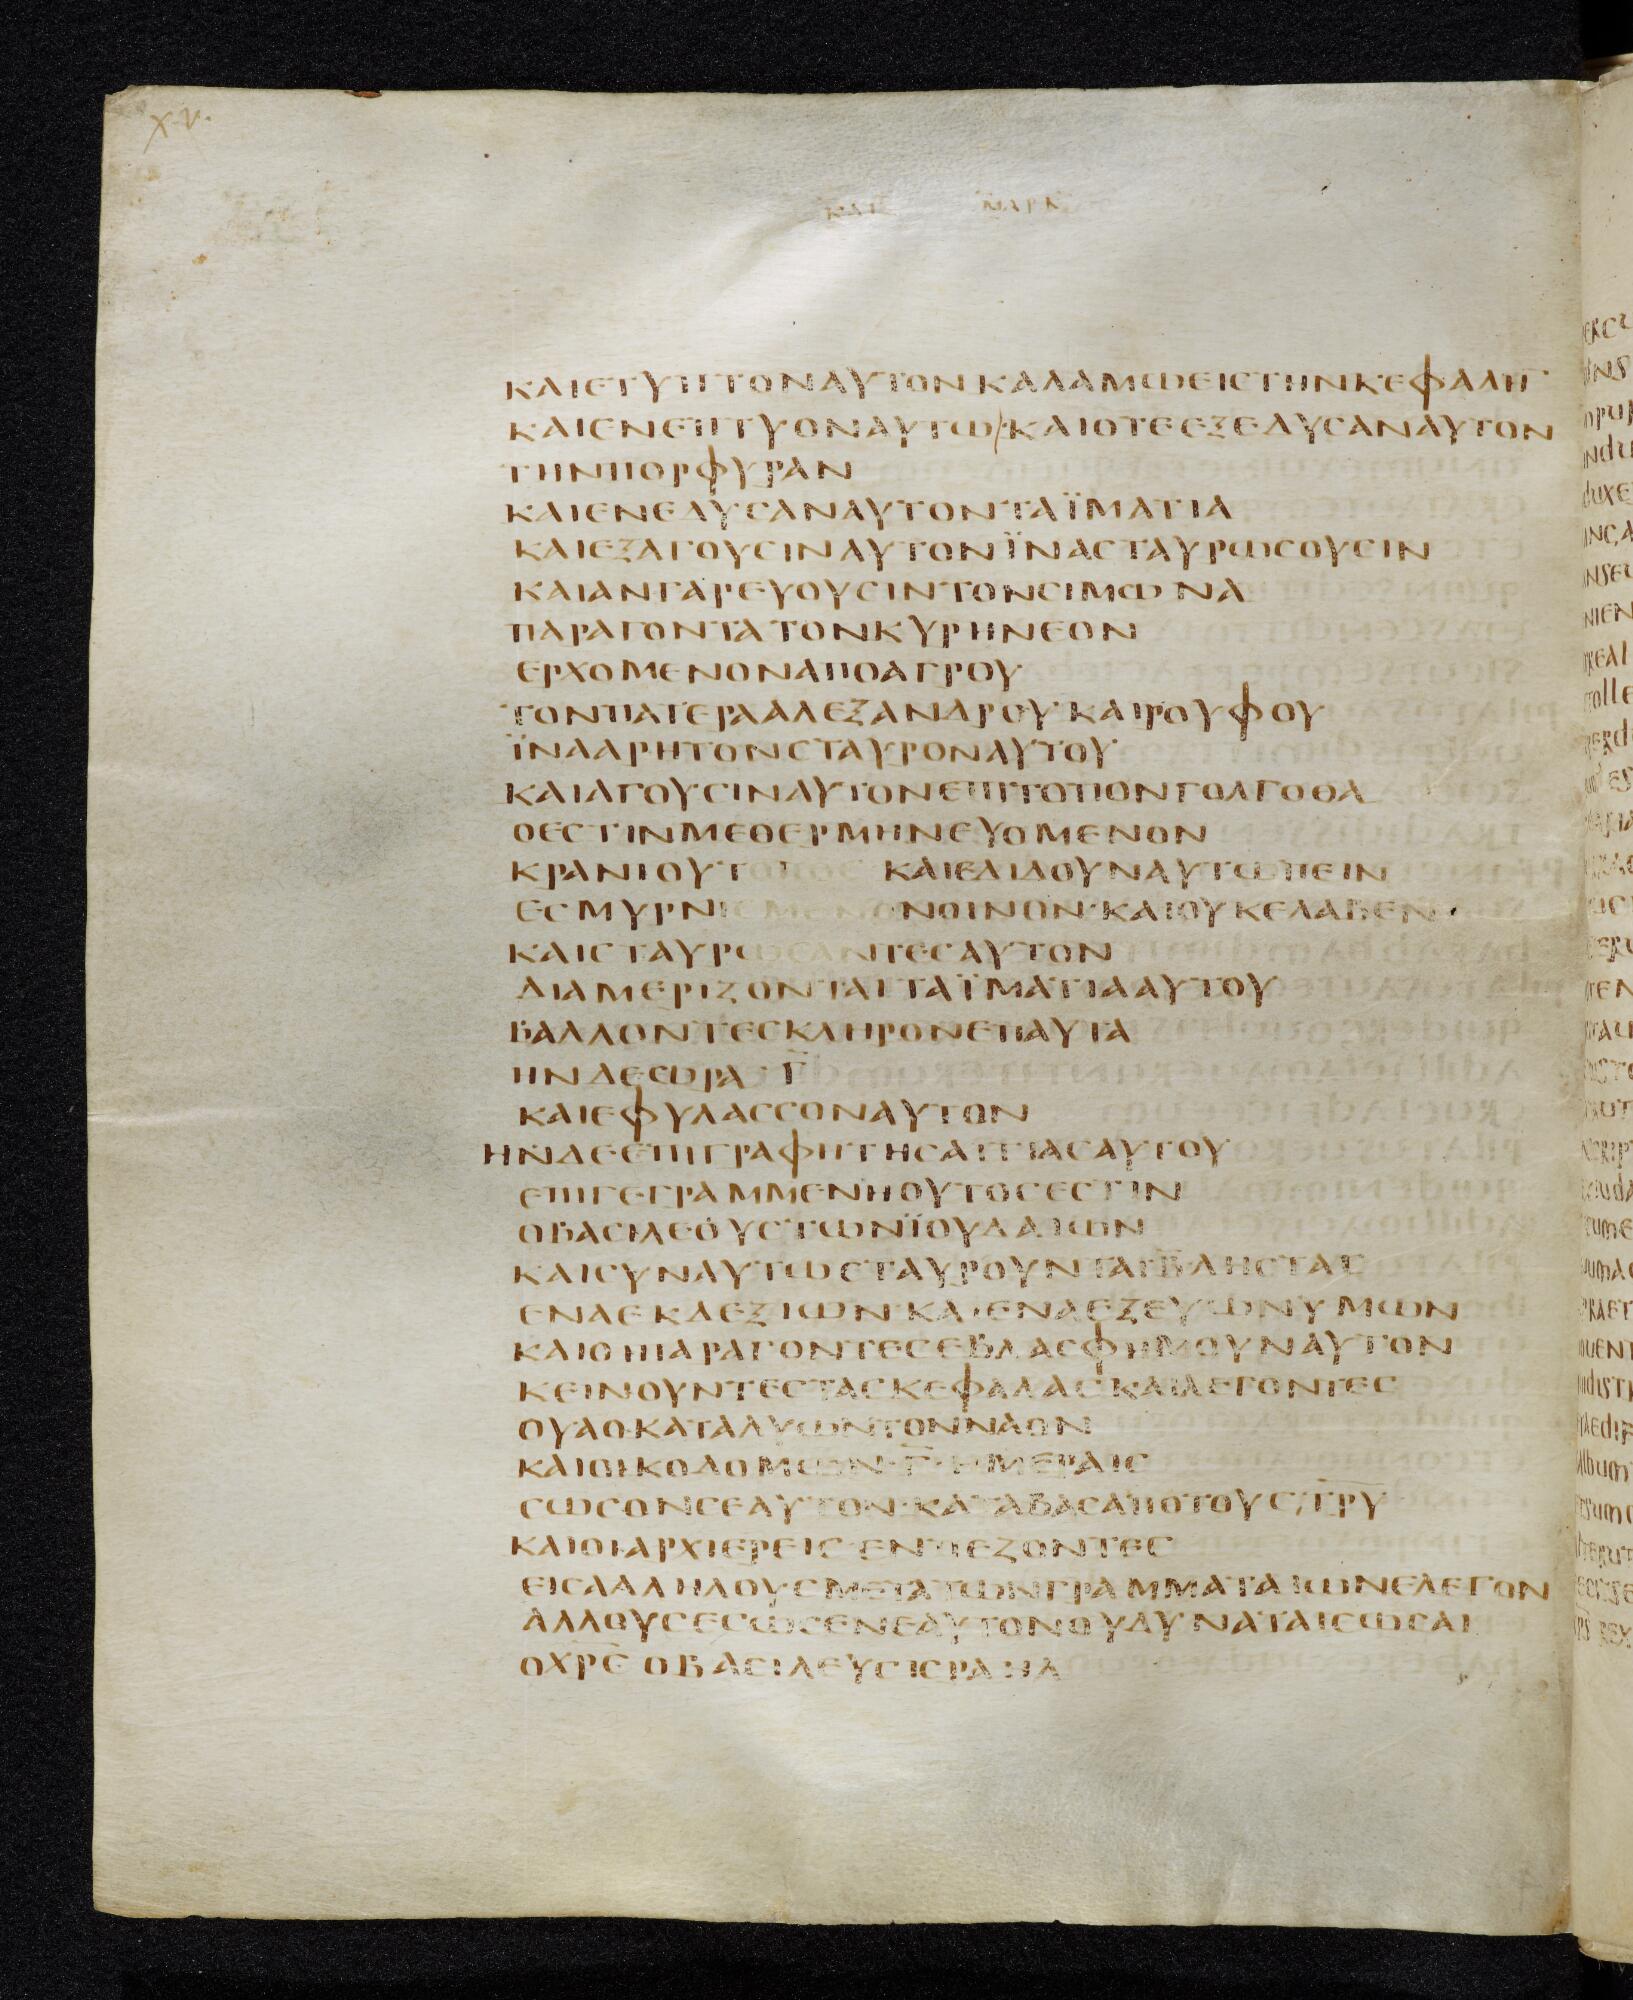 χ.ν.
ΚΑΤΑ ΜΑΡΚ
ΚΑΙΕΤΥΠΤΟΝΑΥΤΟΝΚΑΛΑΜΩΕΙCΤΗΝΚΕΦΑΛΗ̅
ΚΑΙΕΝΕΠΤΥΟΝΑΥΤΩ·ΚΑΙΟΤΕΕΞΕΔΥCΑΝΑΥΤΟΝ
ΤΗΝΠΟΡΦΥΡΑΝ
ΚΑΙΕΝΕΔΥCΑΝΑΥΤΟΝΤΑΪΜΑΤΙΑ
ΚΑΙΕΞΑΓΟΥCΙΝΑΥΤΟΝΪΝΑCΤΑΥΡΩCΟΥCΙΝ
ΚΑΙΑΝΓΑΡΕΥΟΥCΙΝΤΟΝCΙΜΩΝΑ
ΠΑΡΑΓΟΝΤΑΤΟΝΚΥΡΗΝΕΟΝ
ΕΡΧΟΜΕΝΟΝΑΠΟΑΓΡΟΥ
ΤΟΝΠΑΤΕΡΑΑΛΕΞΑΝΔΡΟΥ·ΚΑΙΡΟΥΦΟΥ
ΪΝΑΑΡΗΤΟΝCΤΑΥΡΟΝΑΥΤΟΥ
ΚΑΙΑΓΟΥCΙΝΑΥΤΟΝΕΠΙΤΟΠΟΝΓΟΛΓΟΘΑ
ΟΕCΤΙΝΜΕΘΕΡΜΗΝΕΥΟΜΕΝΟΝ
ΚΡΑΝΙΟΥΤΟΠΟC ΚΑΙΕΔΙΔΟΥΝΑΥΤΩΠΕΙΝ
ΕCΜΥΡΝΙCΜΕΝΟΝΟΙΝΟΝ·ΚΑΙΟΥΚΕΛΑΒΕΝ
ΚΑΙCΤΑΥΡΩCΑΝΤΕCΑΥΤΟΝ
ΔΙΑΜΕΡΙΖΟΝΤΑΙΤΑΪΜΑΤΙΑΑΥΤΟΥ
ΒΑΛΛΟΝΤΕCΚΛΗΡΟΝΕΠΑΥΤΑ
ΗΝΔΕΩΡΑ·Γ̅
ΚΑΙΕΦΥΛΑCCΟΝΑΥΤΟΝ
ΗΝΔΕΕΠΙΓΡΑΦΗΤΗCΑΙΤΙΑCΑΥΤΟΥ
ΕΠΙΓΕΓΡΑΜΜΕΝΗΟΥΤΟCΕCΤΙΝ
ΟΒΑCΙΛΕΟΥCΤΩΝΪΟΥΔΑΙΩΝ
ΚΑΙCΥΝΑΥΤΩCΤΑΥΡΟΥΝΤΑΙΒ̅ΛΗCΤΑΙ
ΕΝΑΕΚΔΕΞΙΩΝ·ΚΑΙΕΝΑΕΞΕΥΩΝΥΜΩΝ
ΚΑΙΟΙΠΑΡΑΓΟΝΤΕCΕΒΛΑCΦΗΜΟΥΝΑΥΤΟΝ
ΚΕΙΝΟΥΝΤΕCΤΑCΚΕΦΑΛΑC·ΚΑΙΛΕΓΟΝΤΕC
ΟΥΑΟΚΑΤΑΛΥΩΝΤΟΝΝΑΟΝ
ΚΑΙΟΙΚΟΔΟΜΩΝ·Γ̅·ΗΜΕΡΑΙC
CΩCΟΝCΕΑΥΤΟΝ·ΚΑΤΑΒΑCΑΠΟΤΟΥC̅Τ̅Ρ̅Υ̅
ΚΑΙΟΙΑΡΧΙΕΡΕΙCΕΝΠΕΖΟΝΤΕC
ΕΙCΑΛΛΗΛΟΥCΜΕΤΑΤΩΝΓΡΑΜΜΑΤΑΙΩΝΕΛΕΓΟΝ
ΑΛΛΟΥCΕCΩCΕΝΕΑΥΤΟΝΟΥΔΥΝΑΤΑΙCΩCΑΙ
ΟΧ̅Ρ̅C̅ΟΒΑCΙΛΕΥCΙCΡΑΗΛ